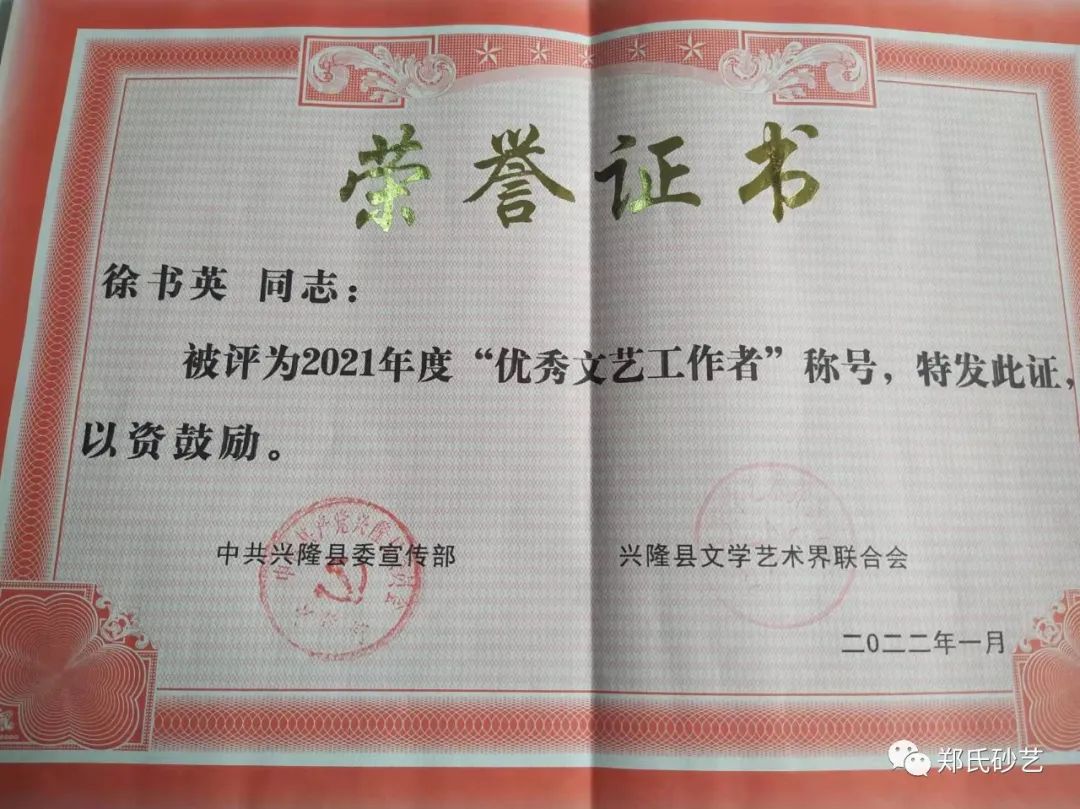 荣誉证书
徐书英 同志：
被评为2021年度“优秀文艺工作者”称号，特发此证，
以资鼓励。
中共兴隆县委宣传部 兴隆县文学艺术界联合会
二〇二二年一月
郑氏砂艺